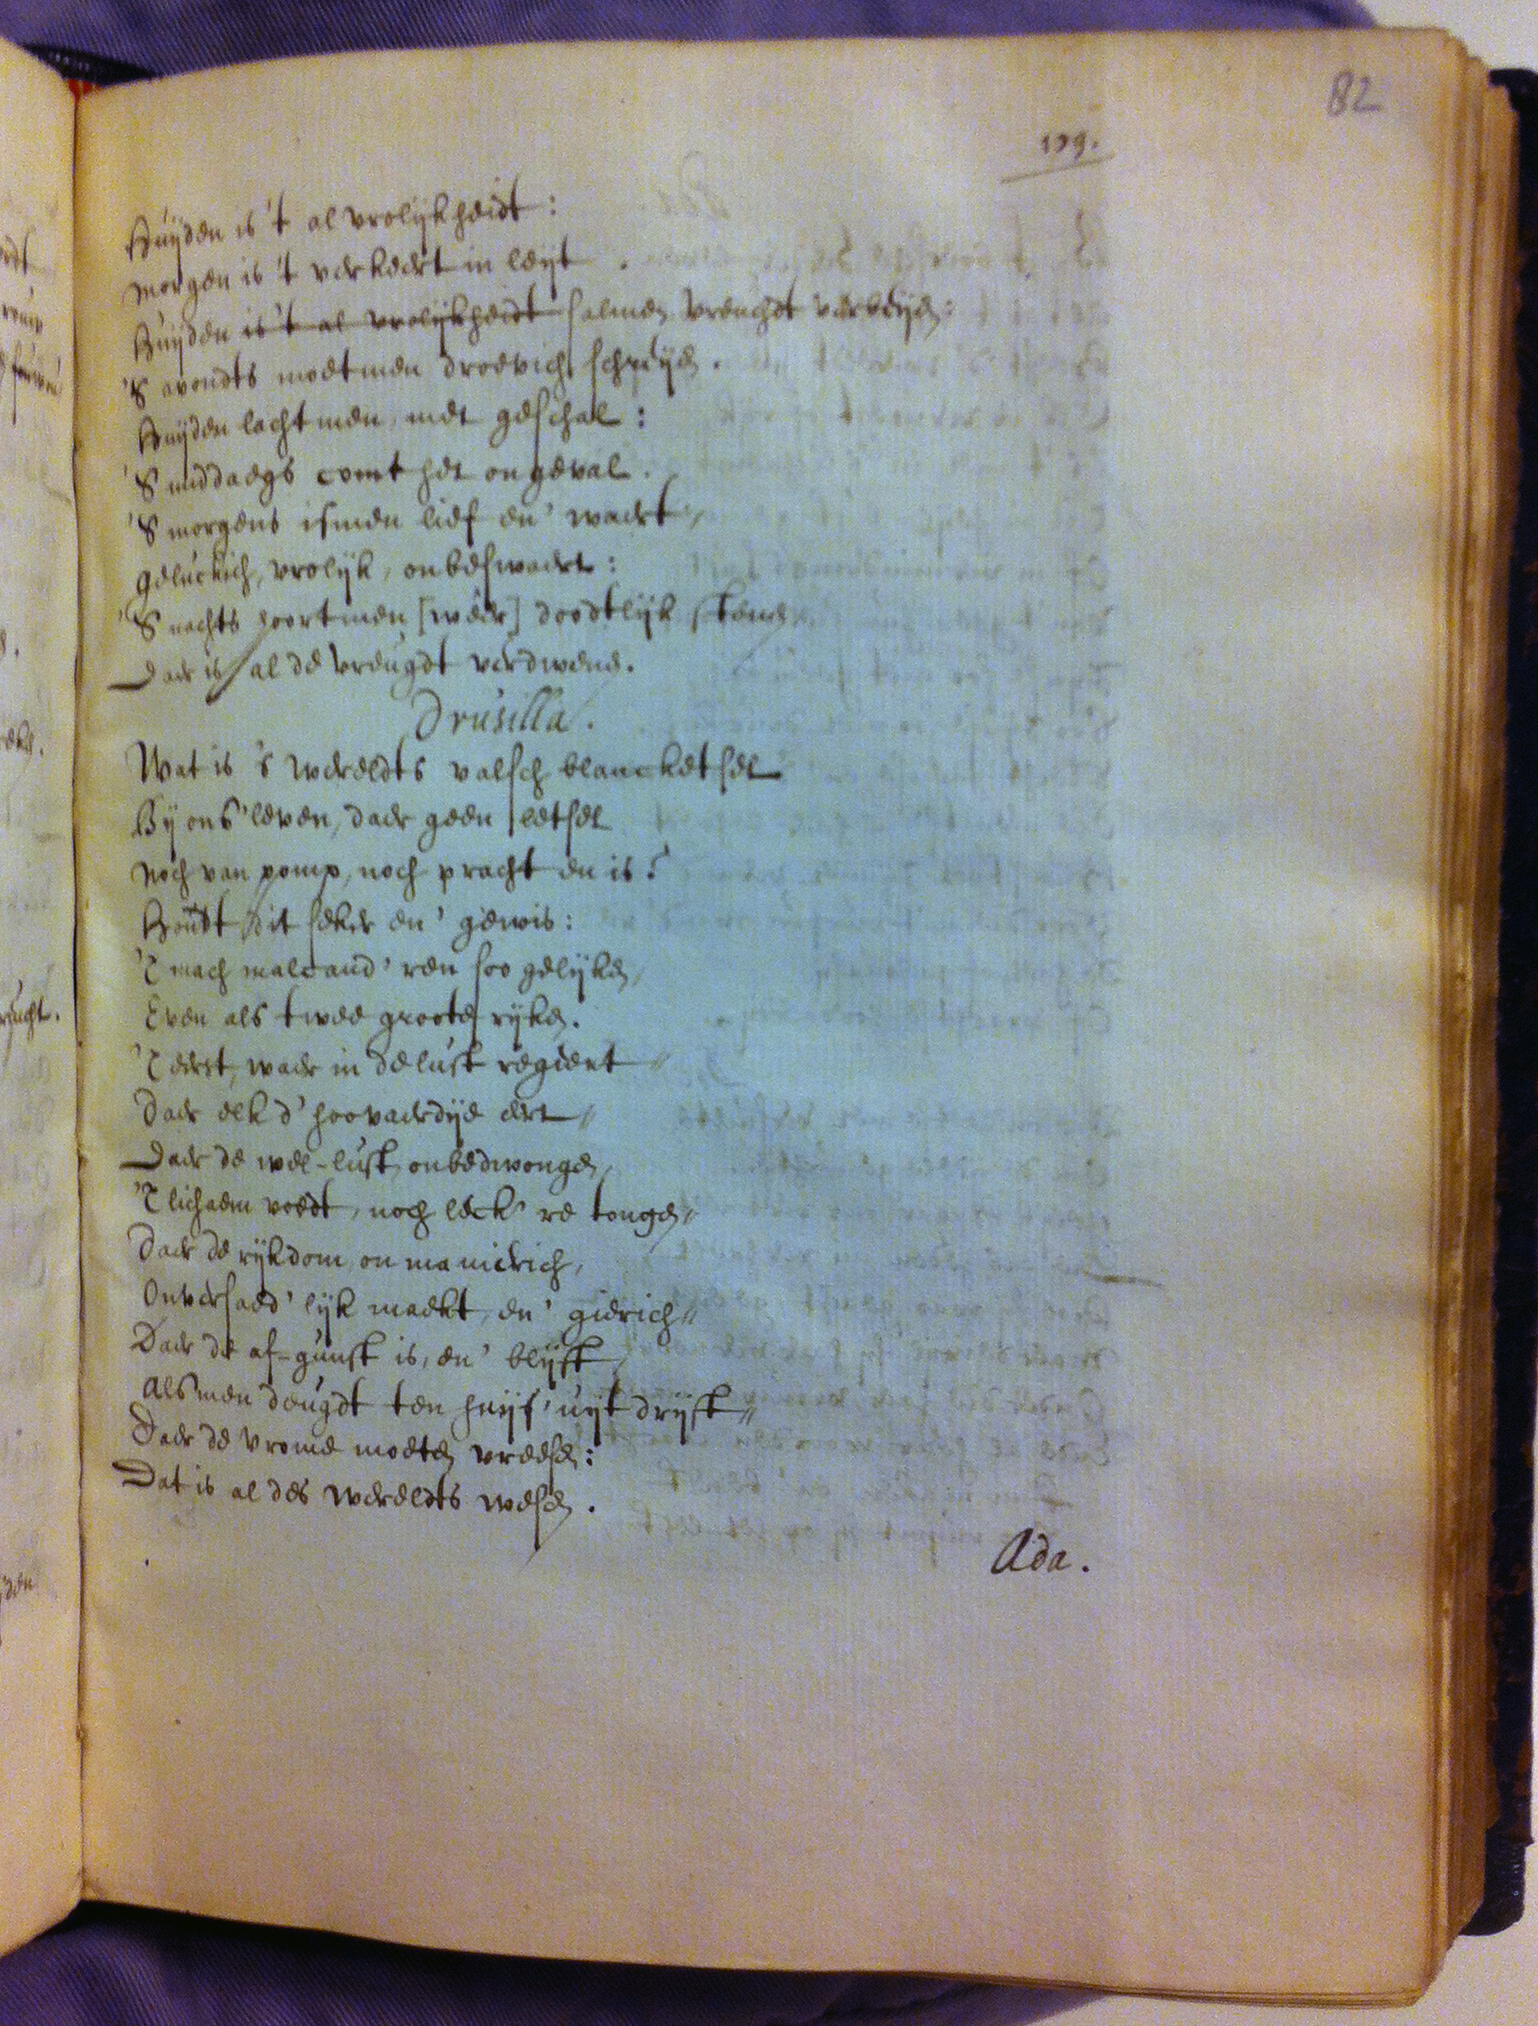 82
179.
Huÿden is 't al vrolÿkheidt:
morgen is 't verkeert in leÿt.
Huÿden is 't al vrolÿkheidt salmen vreuchdt verbeÿden:
'S avondts moetmen droevich schreÿen.
Huÿden lachtmen, met geschal:
'S middaegs comt het ongeval.
'S morgens ismen lief en' waert,
geluckich, vrolÿk, onbeswaert:
'S nachts hoortmen [weer] doodtlÿk stenen
Daer is al de vreugdt verdwenen.
Drusilla.
Wat is 's wereldts valsch blancketsel
Bÿ ons' leven, daer geen letsel
noch van pomp, noch pracht en is?
Houdt dit seker en' gewis:
'T mach malcand'ren soo gelÿken,
Even als twee groote rÿken.
'T eerst, waer in de lust regiert
Daer elk d' hoovaerdÿe eert
Daer de wel-lust, onbedwongen,
'T lichaem voedt, noch leck're tongen
Daer de rÿkdom, onmanierich,
Onversaed'lÿk maekt, en' gierich
Daer de af-gunst is, en' blÿft,
Als men deugdt ten huÿs' uÿt drÿft
Daer de vrome moeten vreesen:
Dat is al des wereldts wesen.
Ada.